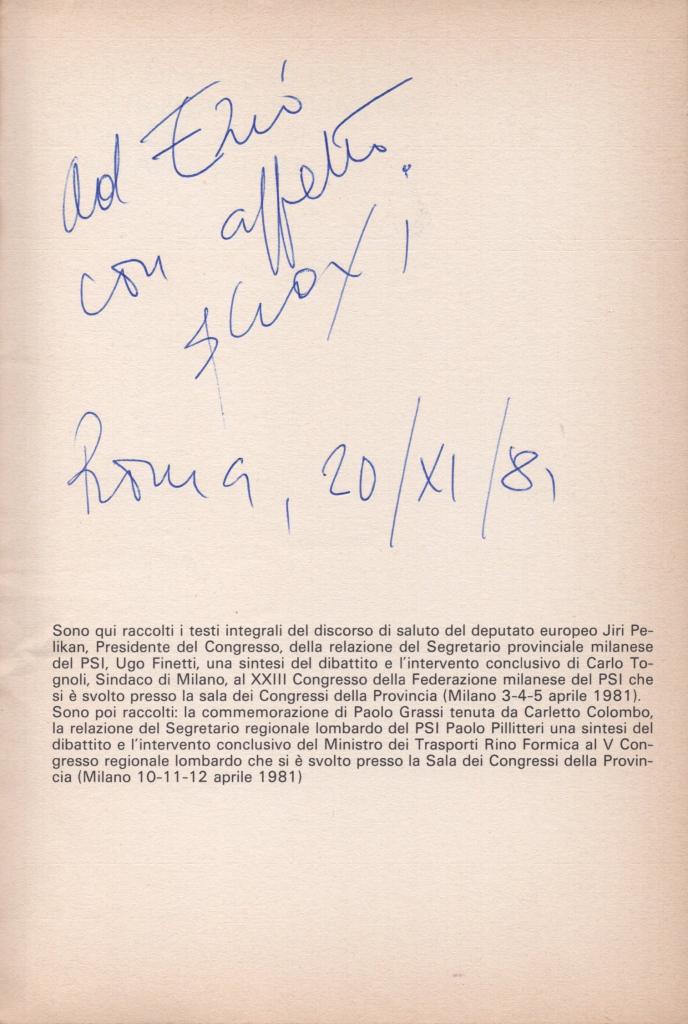 ad Ezio
con affetto.
Roma, 20/XI/81
Sono qui raccolti i testi integrali del discorso di saluto del deputato europeo Jiri Pe-
likan, Presidente del Congresso, della relazione del Segretario provinciale milanese
del PSI, Ugo Finetti, una sintesi del dibattito e l'intervento conclusivo di Carlo To-
gnoli, Sindaco di Milano, al XXIII Congresso della Federazione milanese del PSI che
si è svolto presso la sala dei Congressi della Provincia (Milano 3-4-5 aprile 1981).
Sono poi raccolti: la commemorazione di Paolo Grassi tenuta da Carletto Colombo,
la relazione del Segretario regionale lombardo del PSI Paolo Pillitteri una sintesi del
dibattito e l'intervento conclusivo del Ministro dei Trasporti Rino Formica al V Con-
gresso regionale lombardo che si è svolto presso la Sala dei Congressi della Provin-
cia (Milano 10-11-12 aprile 1981)